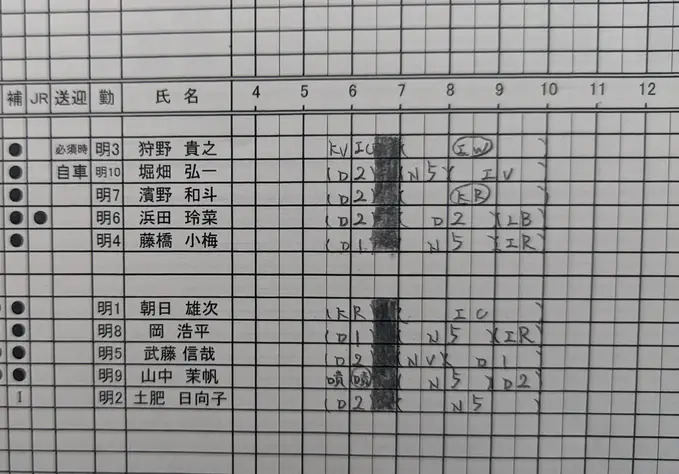 補 JR 送迎 勤 氏名 4 5 6 7 8 9 10 11 12
● 必須時 明3 狩野 貴之 KV IC ( IW )
● 自車 明10 堀畑 弘一 (D2) (N5) IV )
● 明7 濱野 和斗 (D2) ( KR )
● ● 明6 浜田 玲菜 (D2) ( D2 )(LB)
● 明4 藤橋 小梅 (D1 ( N5 )(IR)
● 明1 朝日 雄次 (KR) ( IC )
● 明8 岡 浩平 (D1) ( N5 )(IR)
● 明5 武藤 信哉 (D2) (NV)( D1 )
● 明9 山中 茉帆 噴 噴 ( N5 )(D2)
I 明2 土肥 日向子 (D2) ( N5 )